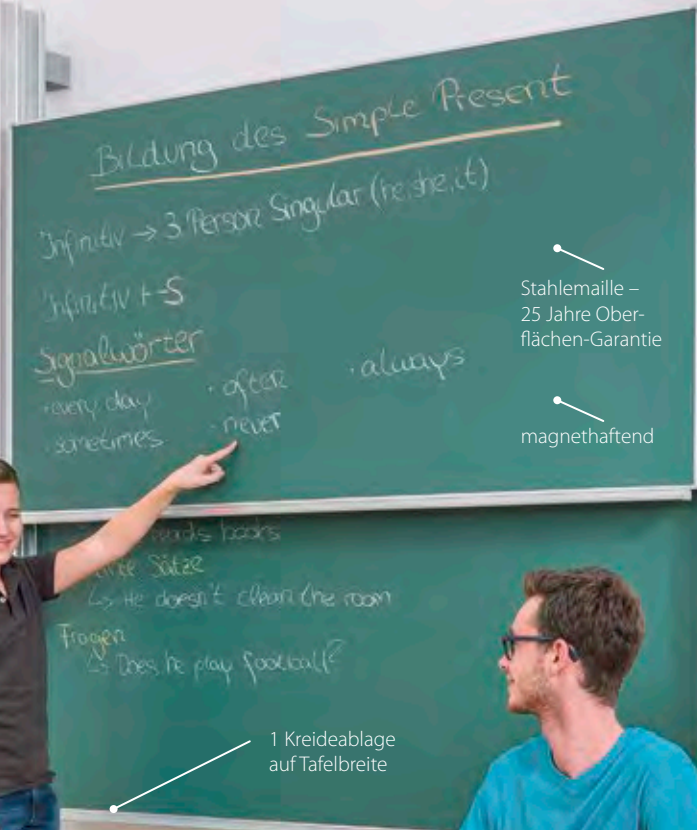 Bildung des Simple Present
Infinitiv → 3. Person Singular (he, she, it)
Infinitiv + -S
Signalwörter
· every day · often · always
· sometimes · never
Stahlemaille –
25 Jahre Ober-
flächen-Garantie
magnethaftend
reads books
Sätze
↳ He doesn't clean the room
Fragen
↳ Does he play football?
1 Kreideablage
auf Tafelbreite